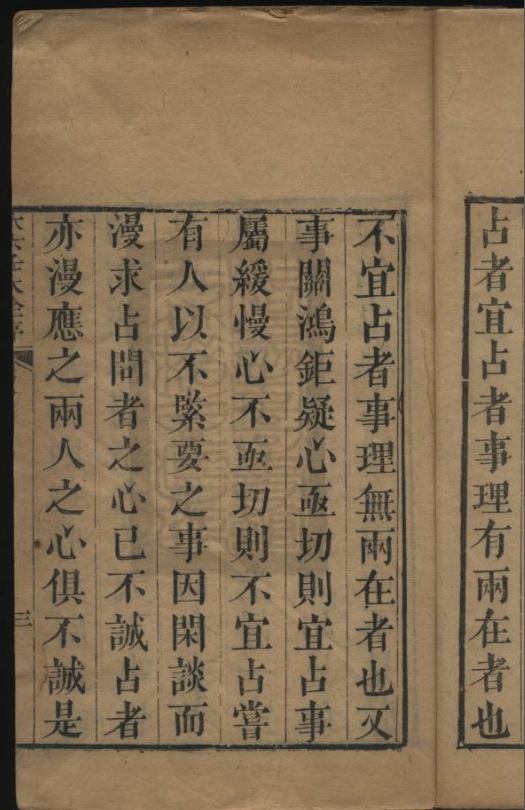 占者宜占者事理有兩在者也
不宜占者事理無兩在者也又
事關鴻鉅疑心亟切則宜占事
屬緩慢心不亟切則不宜占嘗
有人以不緊要之事因閑談而
漫求占問者之心已不誠占者
亦漫應之兩人之心俱不誠是
三